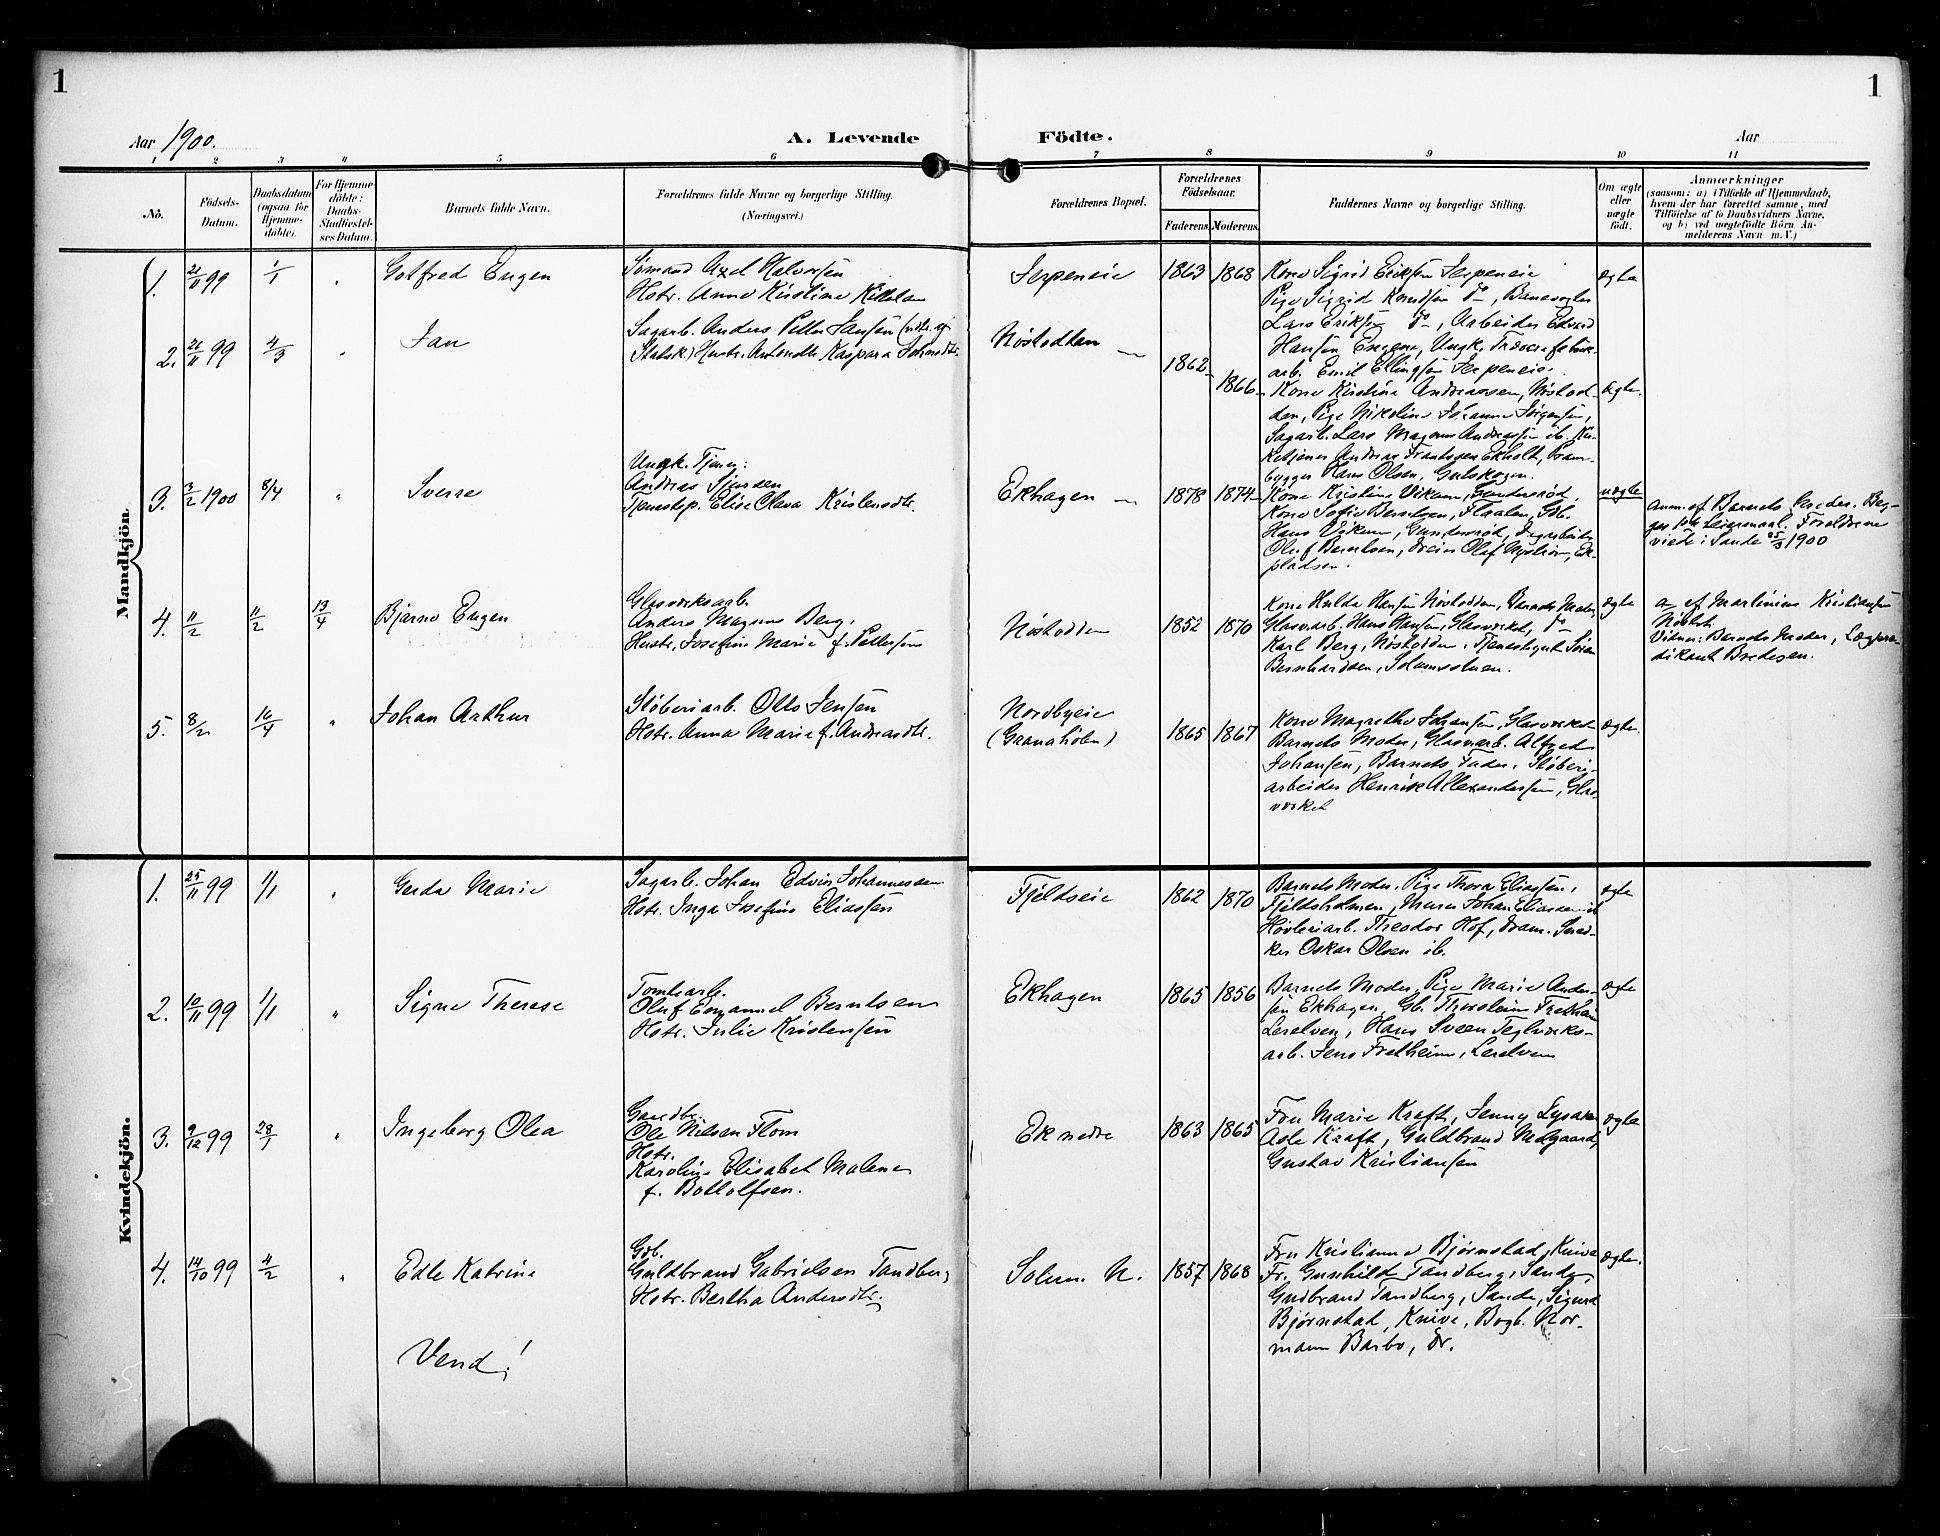 1
1
Aar 1900.
A. Levende
Födte.
Aar
1 2 3 4 5 6 7 8 9 10 11
No.
Födsels-
Datum.
Daabsdatum
(ogsaa for
Hjemme-
döbte).
For Hjemme-
döbte:
Daabs-
Stadfæstel-
ses Datum.
Barnets fulde Navn.
Forældrenes fulde Navne og borgerlige Stilling.
(Næringsvei.)
Forældrenes Bopæl.
Forældrenes
Födselsaar.
Faderens. Moderens.
Faddernes Navne og borgerlige Stilling.
Om ægte
eller
uægte
födt.
Anmærkninger
(saasom: a) i Tilfælde af Hjemmedaab,
hvem der har forrettet samme, med
Tilföielse af to Daabsvidners Navne,
og b) ved uægtefödte Börn An-
melderens Navn m. V.)
Mandkjön.
1. 21/11 99 1/1 " Gotfred Eugen
Sömand Axel Halvorsen
Hstr. Anne Kirstine
Jerpeneie 1863 1868
Kone Sigrid Eriksen Jerpeneie
Pige Sigrid Knudsen do, Banevogter
Lars Eriksen do, Arbeider Edvard
Hansen Engene, Ungk. Trævarefabrik-
arb. Emil Ellingsen Jerpeneie.
ægte
2. 26/11 99 4/3 " Jan
Sagarb. Anders Petter Jansen (udtr. af
Statsk) Hustr. Antonette Kaspara Johnsdtr.
Nöstodden 1862 1866
Kone Kirstine Andreassen, Nöstod-
den, Pige Nikoline Johanne Jörgensen,
Sagarb. Lars Magnus Andreassen ib. Kir-
ketjener Andreas Frantsen Ekholt, Pram-
bygger Hans Olsen, Gulskogen.
ægte.
3. 3/2 1900 8/4 " Sverre
Ungk. Tjener:
Andreas Gjurden
Tjenestep. Elise Olava Kristensdtr.
Ekhagen 1878 1874
Kone Kristine Viken, Gunderröd,
Kone Sofie Berntsen, Flaaten, Gb.
Hans Viken, Gunderröd, Dagarbeider
Oluf Berntsen, Dreier Olaf Nyström, Ek-
pladsen.
uægte
Anm. af Barnets Moder. Beg-
ges 1ste Leiermaal. Forældrene
viede i Sande 25/3 1900
4. 11/2 11/2 13/4 Bjarne Eugen
Glasværksarb.
Anders Magnus Berg,
Hustr. Josefine Marie f. Pettersen
Nöstodden 1852 1870
Kone Hulda Hansen Nöstodden, Barnets Moder,
Glasvarb. Hans Hansen, Glasværket, do
Karl Berg, Nöstodden, Tjenestegut Sören
Bernhardsen, Solumsmoen.
ægte
a af Martinius Kristiansen
Nöstod.
Vidner: Barnets Moder, Lægpræ-
dikant Bredesen.
5. 8/2 16/4 " Johan Arthur
Stöberiarb. Otto Jensen
Hstr. Anna Marie f. Andreasdtr.
Nordbyeie
(Granaholen)
1865 1867
Kone Magrethe Johansen, Glasværket
Barnets Moder, Glasvarb. Alfred
Johansen, Barnets Fader, Stöberi-
arbeider Henrik Allexandersen, Glas-
værket
ægte.
Kvindekjön.
1. 25/11 99 1/1 " Gerda Marie
Sagarb. Johan Edvin Johannessen
Hstr. Inga Josefine Eliassen
Fjeldseie 1862 1870
Barnets Moder, Pige Thora Eliassen,
Fjeldsholmen, Murer Johan Eliassen ib
Hövleriarb. Theodor Hof, Dram. Sned-
ker Oskar Olsen ib.
ægte
2. 10/11 99 1/1 " Signe Therese
Tomtearb.
Oluf Emanuel Berntsen
Hstr. Julie Kristensen
Ekhagen 1865 1856
Barnets Moder, Pige Marie Ander-
sen Ekhagen, Gb. Thorstein Fretheim
Lerelven, Hans Sveen Teglværks-
arb. Jens Fretheim, Lerelven
ægte
3. 9/12 99 28/1 " Ingeborg Olea
Gaardbr.
Ole Nilsen Flom
Hstr.
Karoline Elisabet Malene
f. Bottolfsen.
Ek nedre 1863 1865
Fru Marie Kraft, Jenny Lysaker
Asle Kraft, Guldbrand Melgaard,
Gustav Kristiansen
ægte
4. 14/10 99 4/2 " Edle Katrine
Gb.
Guldbrand Gabrielsen Tandberg
Hstr. Bertha Andersdtr.
Solum N. 1857 1868
Fru Kristianne Björnstad, Knive
Fr. Gunhild Tandberg, Sande,
Gudbrand Tandberg, Sande, Sigurd
Björnstad, Knive, Bogh. Nor-
mann Barbo, Dr.
ægte.
Vend!